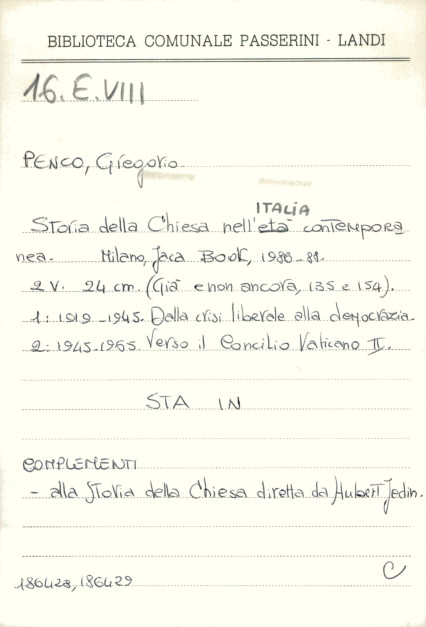 BIBLIOTECA COMUNALE PASSERINI - LANDI
16. E. VIII
PENCO, Gregorio.
ITALIA
Storia della Chiesa nell'età contempora
nea. Milano, Jaca Book, 1986-88.
2 V. 24 cm. (Già e non ancora, 135 e 154).
1: 1919-1945. Dalla crisi liberale alla democrazia.
2: 1945-1965. Verso il Concilio Vaticano II.
STA IN
COMPLEMENTI
- alla Storia della Chiesa diretta da Hubert Jedin.
186428, 186429
C